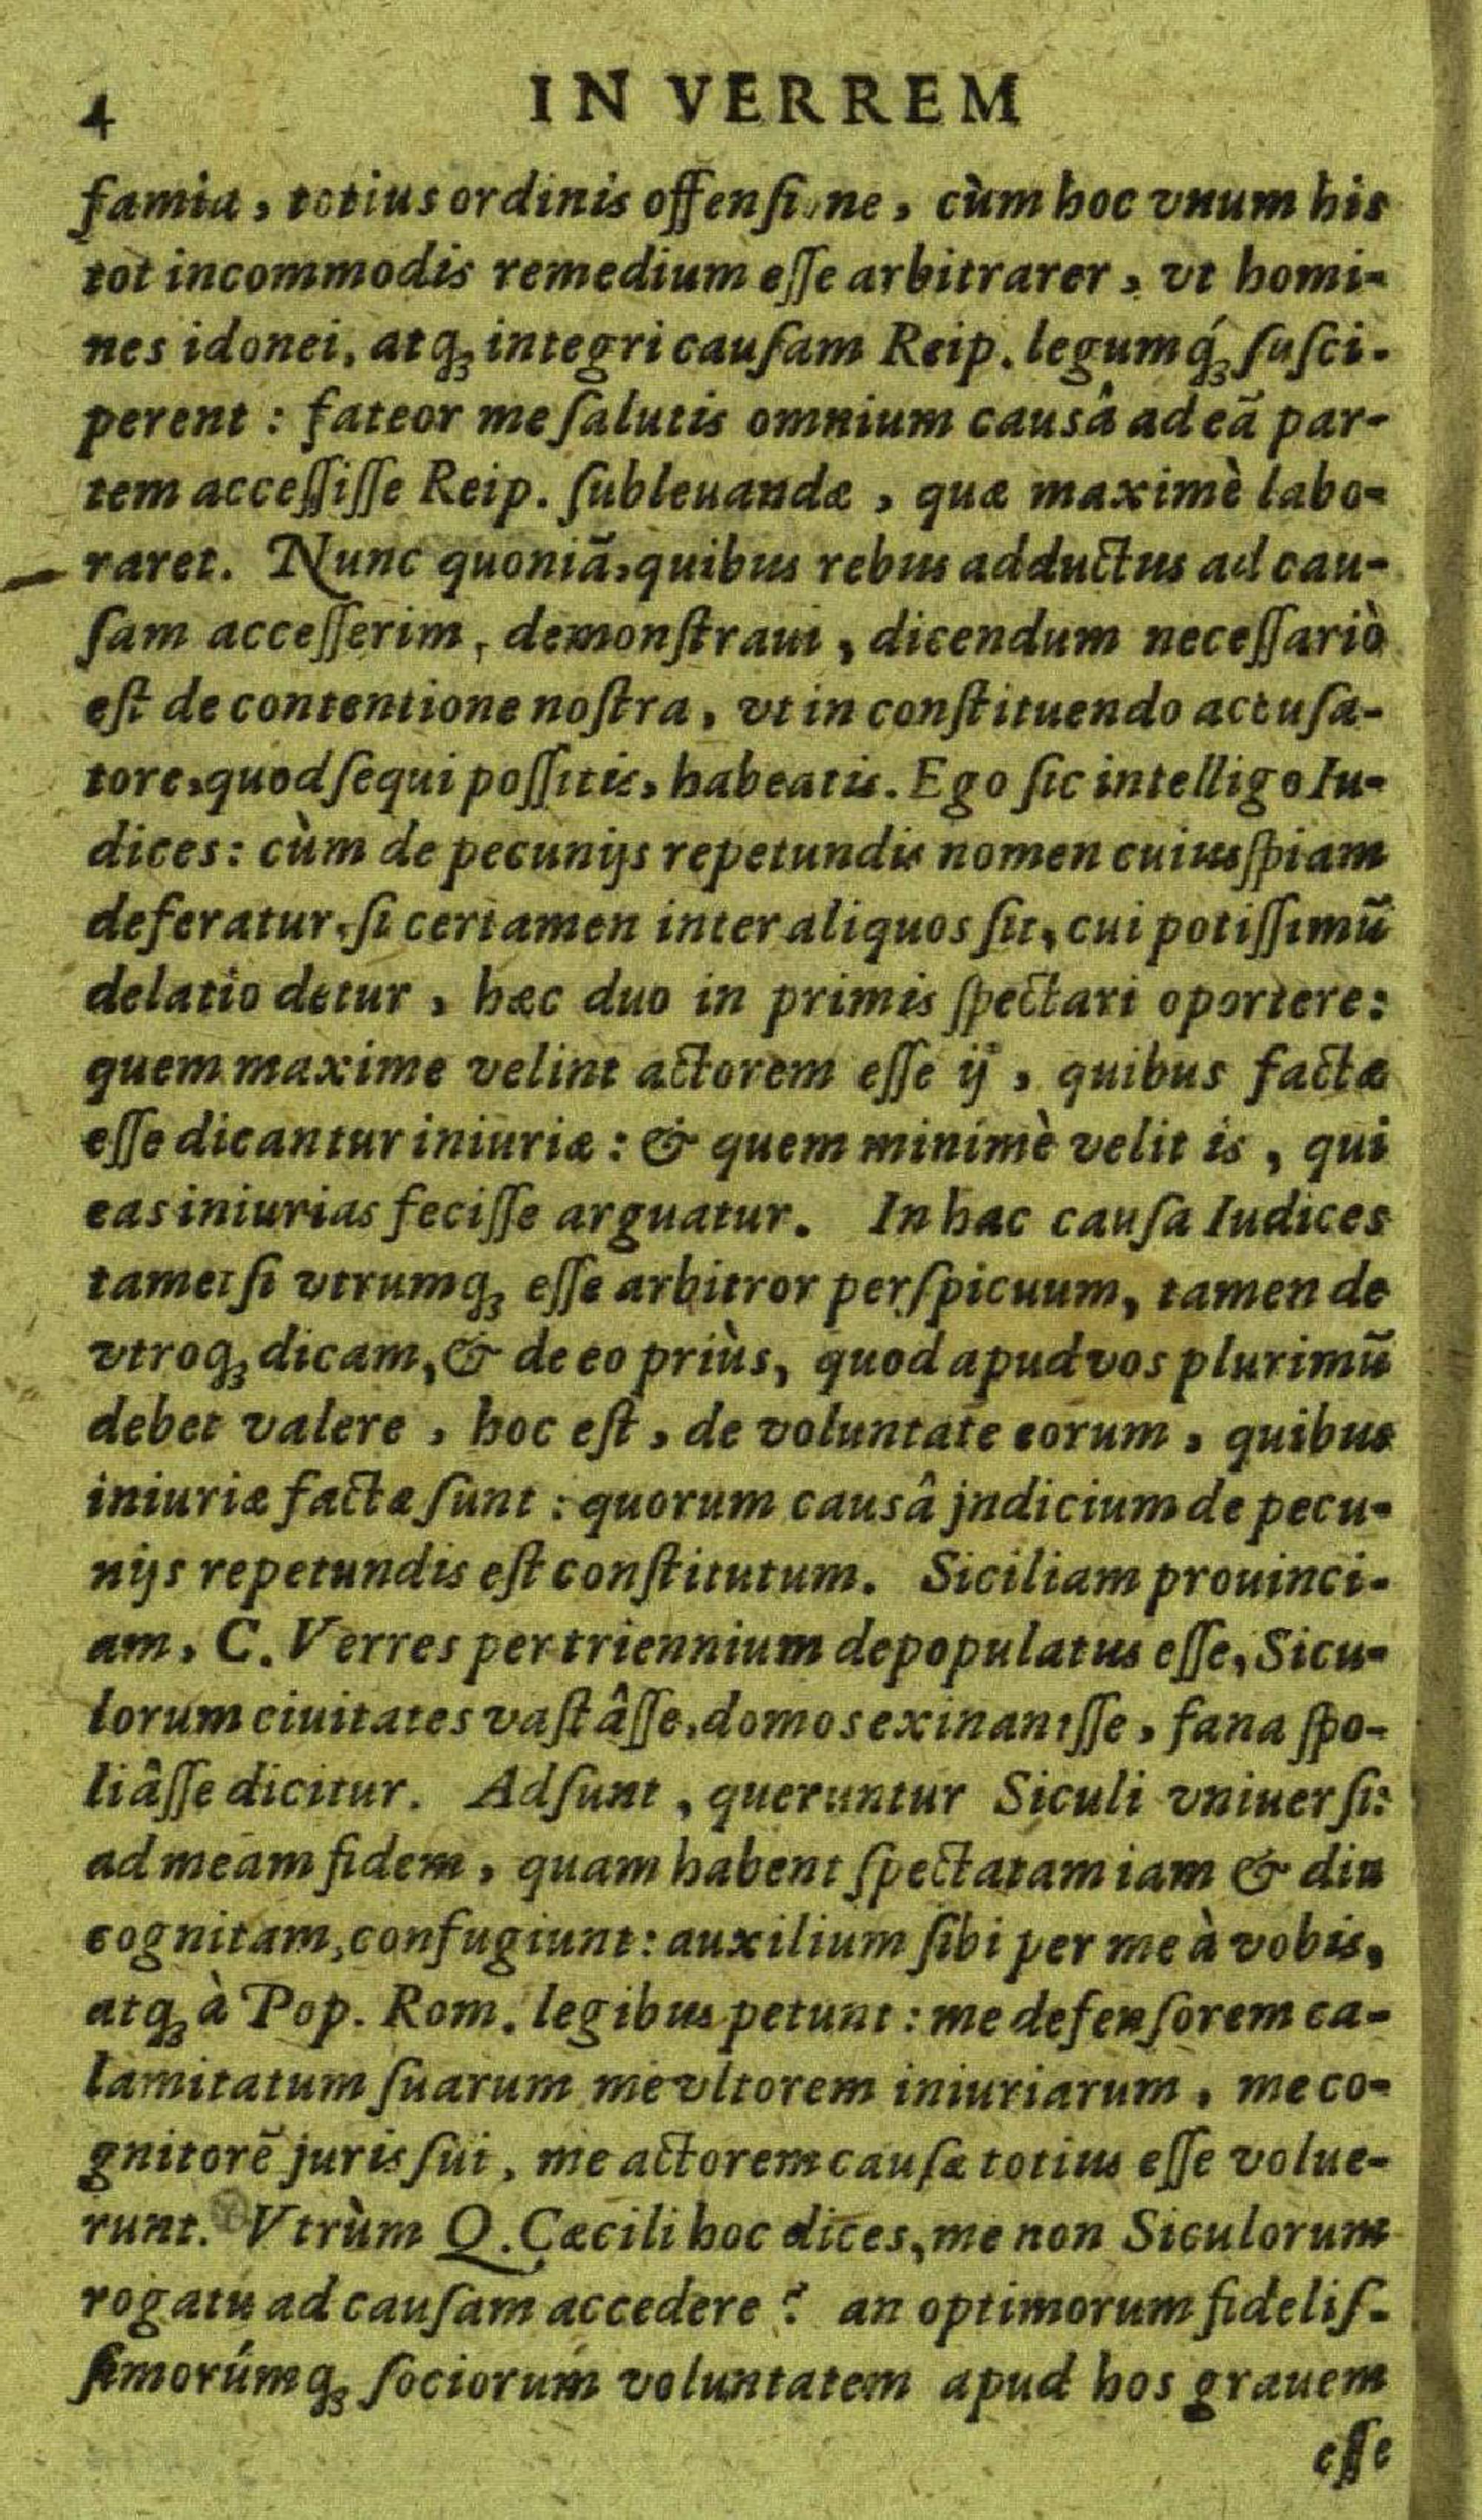 4 IN VERREM
famia, totius ordinis offenſione, cùm hoc vnum his
tot incommodis remedium eſſe arbitrarer, vt homi-
nes idonei, atq́ꝫ integri cauſam Reip. legumq́ꝫ ſuſci-
perent: fateor me ſalutis omnium causâ ad eã par-
tem acceſſiſſe Reip. ſubleuandæ, quæ maximè labo-
raret. Nunc quoniã, quibus rebus adductus ad cau-
ſam acceſſerim, demonſtraui, dicendum neceſſariò
eſt de contentione noſtra, vt in conſtituendo accuſa-
tore, quod ſequi poſſitis, habeatis. Ego ſic intelligo Iu-
dices: cùm de pecunijs repetundis nomen cuiuſpiam
deferatur, ſi certamen inter aliquos ſit, cui potiſſimũ
delatio detur, hæc duo in primis ſpectari oportere:
quem maxime velint actorem eſſe ij, quibus factæ
eſſe dicantur iniuriæ: & quem minimè velit is, qui
eas iniurias feciſſe arguatur. In hac cauſa Iudices
tametſi vtrumqꝫ eſſe arbitror perſpicuum, tamen de
vtroqꝫ dicam, & de eo priùs, quod apud vos plurimũ
debet valere, hoc eſt, de voluntate eorum, quibus
iniuriæ factæ ſunt: quorum causâ jndicium de pecu-
nijs repetundis eſt conſtitutum. Siciliam prouinci-
am, C. Verres per triennium depopulatus eſſe, Sicu-
lorum ciuitates vaſtâſſe, domos exinaniſſe, fana ſpo-
liâſſe dicitur. Adſunt, queruntur Siculi vniuerſi:
ad meam fidem, quam habent ſpectatam iam & diu
cognitam, confugiunt: auxilium ſibi per me à vobis,
atqꝫ à Pop. Rom. legibus petunt: me defenſorem ca-
lamitatum ſuarum me vltorem iniuriarum, me co-
gnitorẽ juris ſui, me actorem cauſæ totius eſſe volue-
runt. Vtrùm Q. Cæcili hoc dices, me non Siculorum
rogatu ad cauſam accedere? an optimorum fideliſ-
ſimorúmqꝫ ſociorum voluntatem apud hos grauem
eſſe